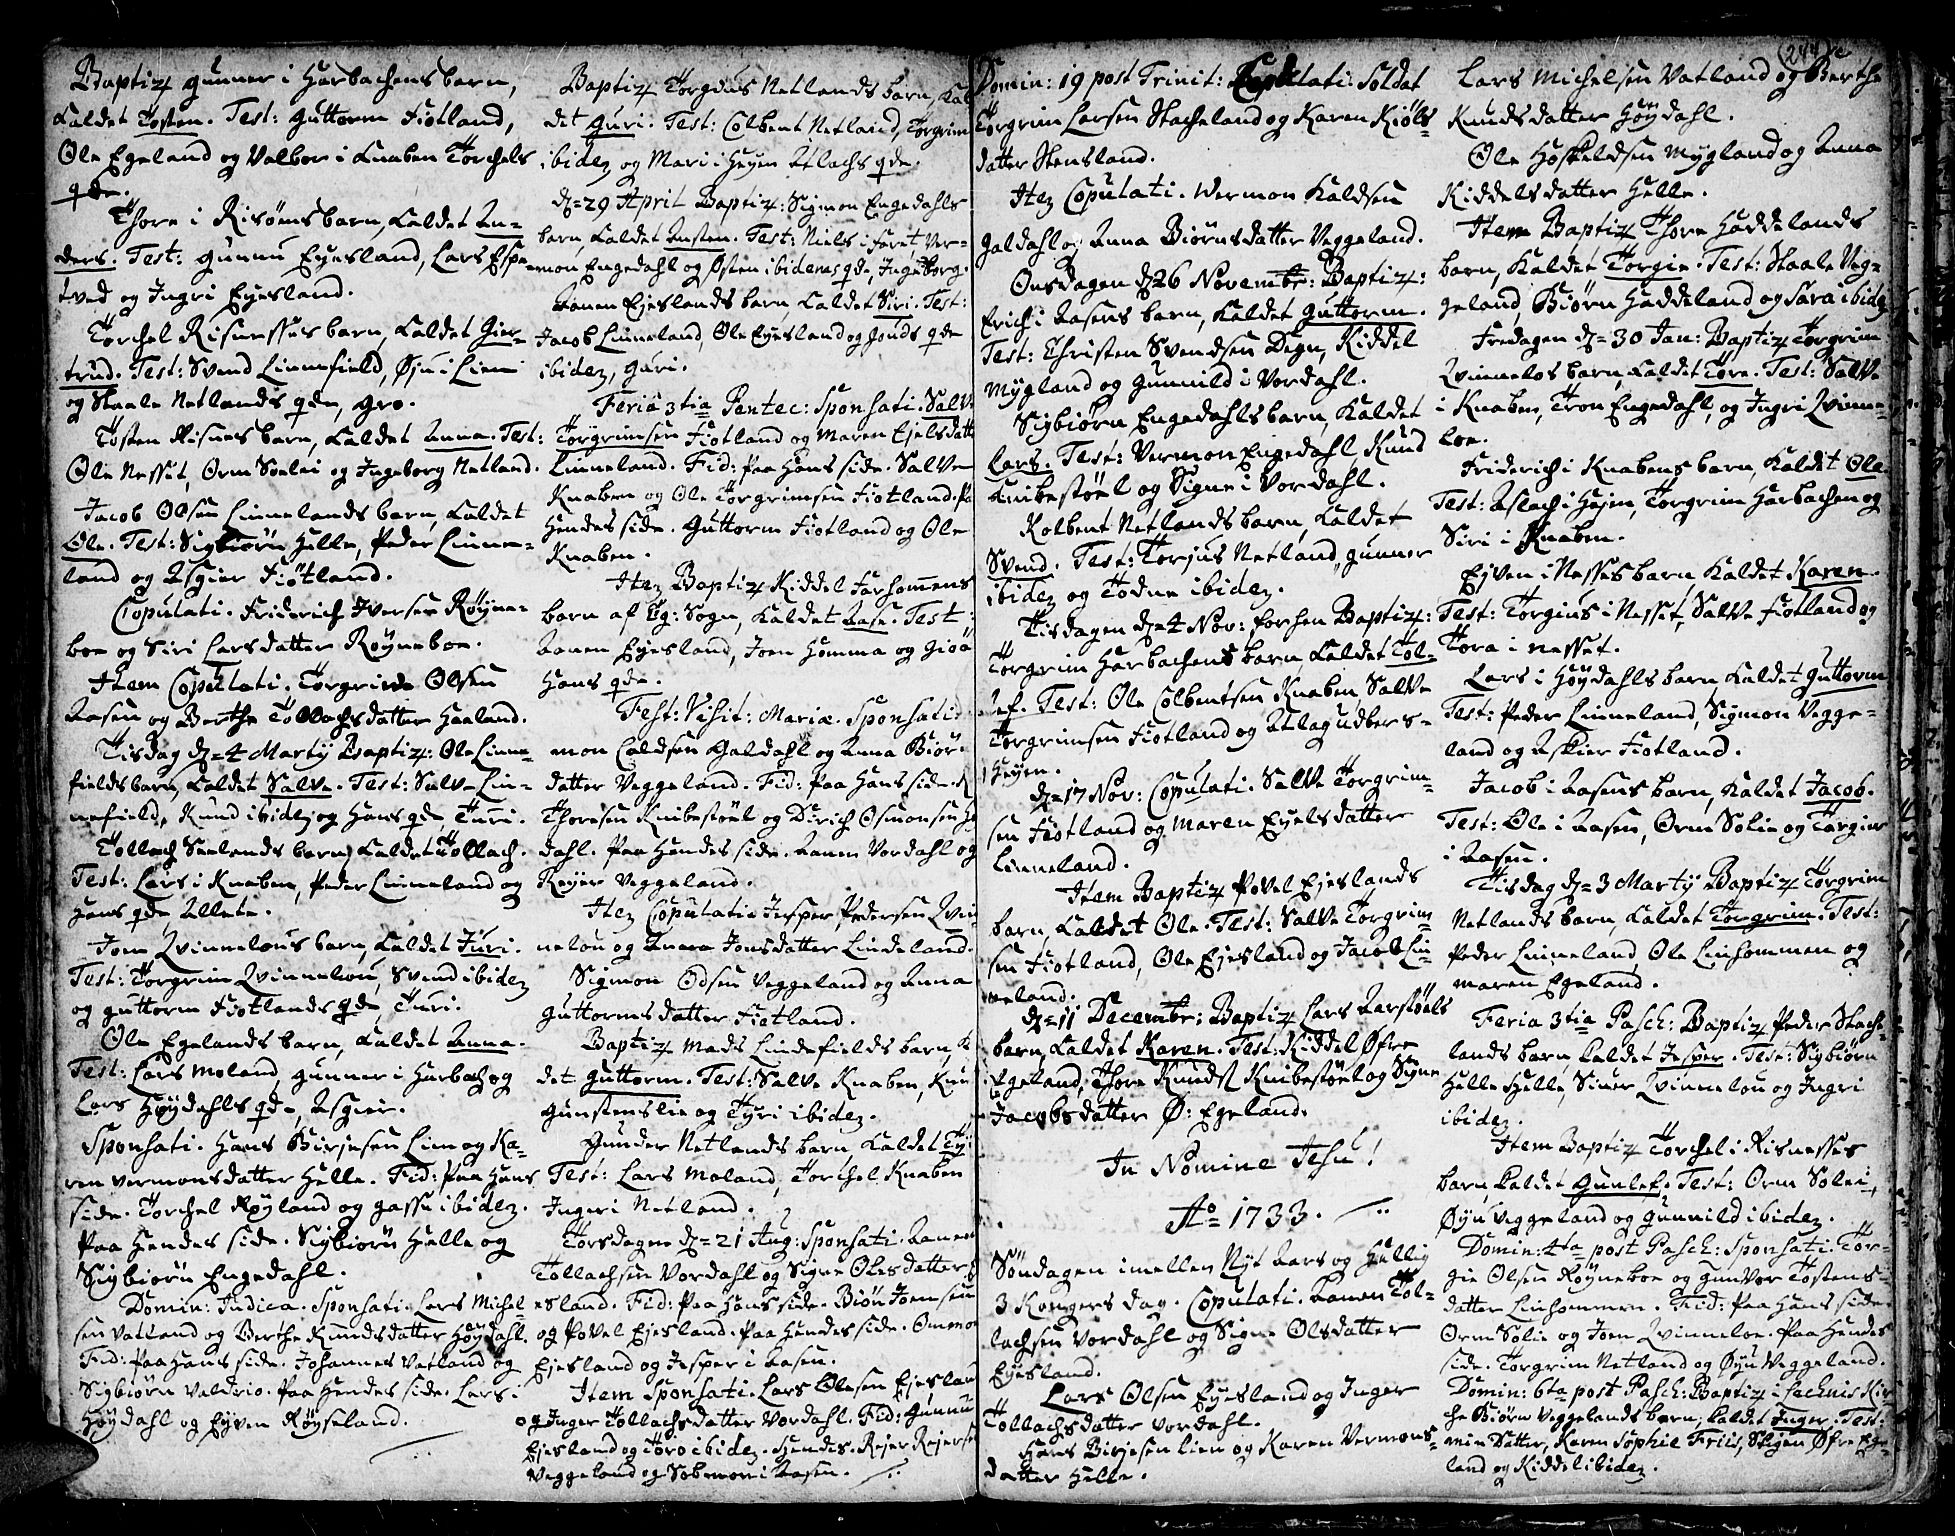 Baptiz gunner i Harbachens barn,
kaldet Tosten. Test: Guttorm Fiotland,
Ole Egeland og Valbor i Knaben Torchels
qde.
Thore i Risöms barn, kaldet An-
ders. Test: Gunnu Eyesland, Lars Espe-
tved og Ingri Eyesland.
Torchel Risnesses barn, kaldet Gier-
trud. Test: Svend Linnefield, Øju i Liem
og Staale Netlands qde, Gro.
Tosten Risnes barn, kaldet Anna. Test:
Ole Nesset, Orm Solei og Ingeborg Netland.
Jacob Olsen Linnelands barn, kaldet
Ole. Test: Sigbiörn Helle, Peder Linne-
land og Asgier Fiötland.
Copulati. Friderich Iversen Röyne-
boe og Siri Larsdatter Röyneboe.
Item Copulati. Torgrim Olsen
Aasen og Berthe Tollachsdatter Haaland.
Tisdag d= 4 Marty Baptiz: Ole Linne-
fields barn, kaldet Salve. Test: Salve Lin-
nefield, Knud ibidez og Hans qde, Turi.
Tollach Selands barn, kaldet Tollach.
Test: Lars i Knaben, Peder Linneland og
Hans qde Allete.
Joen Qvinnelous barn, kaldet Turi.
Test: Torgrim Qvinnelou, Svend ibidez
og Guttorm Fiotlands qde, Turi.
Ole Egelands barn, kaldet Anna.
Test: Lars Moland, gunner i Harbach og
Lars Höydahls qde, Asgier.
Sponsati. Hans Birjesen Liem og Ka-
ren Vermonsdatter Helle. Fid: Paa Hans
side. Torchel Röyland og Gasse ibidez.
Paa Hendes side. Sigbiörn Helle og
Sigbiörn Engedahl.
Domin: Judica. Sponsati. Lars Michel-
sen Vatland og Berthe Knudsdatter Höydahl.
Fid: Paa Hans side. Johannes Vatland og
Sigbiörn Valdrio. Paa Hendes side. Lars i
Höydahl og Eyven Röyseland.
Baptiz Torgdus Netlands barn, kal
det Guri. Test: Colbent Netland, Torgrim
ibidez og Mari i Heyen Atlachs qde.
d= 29 April Baptiz: Sigmon Engedahls
barn, kaldet Austen. Test: Niels i Feret, Ver-
mon Engedahl og Östen ibidems qde, Ingeborg.
Aanen Eyeslands barn, kaldet Siri. Test:
Jacob Linneland, Ole Eyesland og Gonds qde
ibidez, Guri.
Feria 3tia Pentec: Sponsati. Salve
Torgrimsen Fiotland og Maren Eielsdatter
Linneland. Fid: Paa Hans side. Salve
Knaben og Ole Torgrimsen Fiotland. Pa
Hendes side. Guttorm Fiotland og Ole
Knaben.
Itez Baptiz Kiddel Farhommens
barn af By: Sogn, kaldet Aase. Test:
Aanen Eyesland, Joen Homma og Giöa
Hans qde.
Fest: Visit: Mariæ. Sponsati
mon Caldsen Galdahl og Anna Biör-
datter Veggeland. Fid: Paa Hans side.
Thoresen Knibestöel og Dirich Osmonsen
dahl. Paa Hendes side. Aanen Vordahl og
Reyer Veggeland.
Itez Copulatie Jesper Pedersen Qvin
nelou og Anna Jonsdatter Lindeland.
Sigmon Odsen Veggeland og Anna
Guttormsdatter Fiotland.
Baptiz Mads Lindefields barn, k
det Guttorm. Test: Salve Knaben, Knu
Gunstenslie og Tyri ibidez.
Gunder Netlands barn, kaldet Tyi
Test: Lars Moland, Torchel Knaben
Ingeri Netland.
Torsdagen d= 21 Aug: Sponsati. Aanen
Tollachsen Vordahl og Signe Olesdatter E
esland. Fid: Paa Hans side. Biön Joensen
og Povel Eiesland. Paa Hendes side. Ommo
Eiesland og Jesper i Aasen.
Item Sponsati. Lars Olesen Eieslan
og Inger Tollachsdatter Vordahl. Fid: Gunnu
Eiesland og Toro ibidez. Hendes. Rejer Rejerse
Veggeland og Salomon i Aasen.
(244)
Domin: 19 post Trinit: Copulati: Soldat
Torgrim Larsen Stacheland og Karen Kiöls-
datter Stensland.
Itez Copulati. Wermon Kaldsen
Galdahl og Anna Biörnsdatter Veggeland.
Onsdagen d= 26 Novembr: Baptiz:
Erich i Aasens barn, kaldet Guttorm.
Test: Christen Svendsen Degn, Kiddel
Mygland og Gunnild i Vordahl.
Sigbiörn Engedahls barn, kaldet
Lars. Test: Vermon Engedahl Knud
Knibestöel og Signe i Vordahl.
Kolbent Netlands barn, kaldet
Svend. Test: Torjus Netland, gunner
ibidez og Todne ibidez.
Tisdagen d= 4 Nov: forhen Baptiz:
Torgrim Harbachens barn kaldet Tol-
lef. Test: Ole Colbentsen Knaben, Salve
Torgrimsen Fiotland og Atlag udbers-
i Heyen.
d= 17 Nov: Copulati. Salve Torgrim-
sen Fiotland og Maren Eyelsdatter
Linneland.
Item Baptiz Povel Eieslands
barn, kaldet Ole. Test: Salve Torgrim-
sen Fiotland, Ole Eiesland og Jacob Lin-
neland.
d= 11 Decembr: Baptiz Lars Aarstöels
barn, kaldet Karen. Test: Kiddel Øfre
Egeland, Thore Knuds Knibestöel og Signe
Jacobsdatter Ø: Egeland.
In Nomine Jesu!
Ao 1733.
Söndagen imellem Nyt Aars og Hellig
3 Kongers dag. Copulati. Aanen Tol-
lachsen Vordahl og Signe Olsdatter
Eyesland.
Lars Olsen Eyesland og Inger
Tollachsdatter Vordahl.
Hans Birjesen Lien og Karen Vermons-
datter Helle.
Lars Michelsen Vatland og Berthe
Knudsdatter Höydahl.
Ole Höskeldsen Mygland og Anna
Kiddelsdatter Helle.
Item Baptiz Thore Haddelands
barn, kaldet Torgie. Test: Staale Veg-
geland, Biörn Haddeland og Sara ibidez
Fredagen d= 30 Jan: Baptiz Torgrim
Qvinnelos barn, kaldet Tore. Test: Salve
i Knaben, Tron Engedahl, og Ingri Qvinne-
loe.
Friderich i Knabens barn, kaldet Ole
Test: Aslach i Heyen, Torgrim Harbachen og
Siri i Knaben.
Eyven i Nesses barn kaldet Karen.
Test: Torgius i Nesset, Salve Fiotland og
Tora i Nesset.
Lars i Höydahls barn kaldet Guttorm
Test: Peder Linneland, Sigmon Vegge-
land og Askier Fiotland.
Jacob i Aasens barn, kaldet Jacob.
Test: Ole i Aasen, Orm Solie og Torgier
i Aasen.
Tisdag d= 3 Marty Baptiz Torgrim
Netlands barn, kaldet Torgrim. Test:
Peder Linneland, Ole Linhommen og
Maren Egeland.
Feria 3tia Pasch: Baptiz Peder Stache-
lands barn kaldet Jesper. Test: Sigbiörn
Helle Helle, Siver Qvinnelou og Ingri
ibidez.
Item Baptiz Torchel i Risnesses
barn kaldet Gunlef. Test: Orm Solei,
Öyu Veggeland og Gunnild ibidez.
Domin: 4ta post Pasch: Sponsati. Tor-
gie Olsen Röyneboe og Gunvor Tostens-
datter Linhommen. Fid: Paa Hans side
Orm Solie og Joen Qvinneloe. Paa Hendes
side. Torgrim Netland og Øyu Veggeland.
Domin: 6ta post Pasch: Baptiz i Fechnis Kir-
che Biörn Veggelands barn, kaldet Inger. Test:
min Datter, Karen Sophie Friis, Stigen Øfre Ege-
land og Kiddel ibidez.